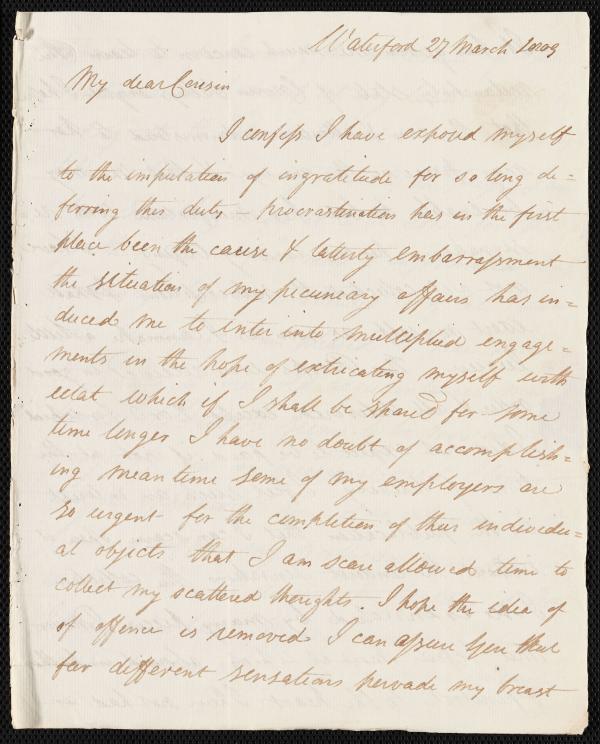 Waterford 27 March 1809
My dear Cousin
I confess I have exposed myself
to the imputation of ingratitude for so long de=
ferring this duty – procrastination has in the first
place been the cause & latterly embarrassment
the situation of my pecuneary affairs has in=
duced me to enter into multiplied engage=
ments in the hope of extricating myself with
eclat which if I shall be spared for some
time longer I have no doubt of accomplish=
ing meantime some of my employers are
so urgent for the completion of their individu=
al objects that I am scare allowed time to
collect my scattered thoughts. I hope the idea of
of offence is removed I can assure you that
far different sensations pervade my breast